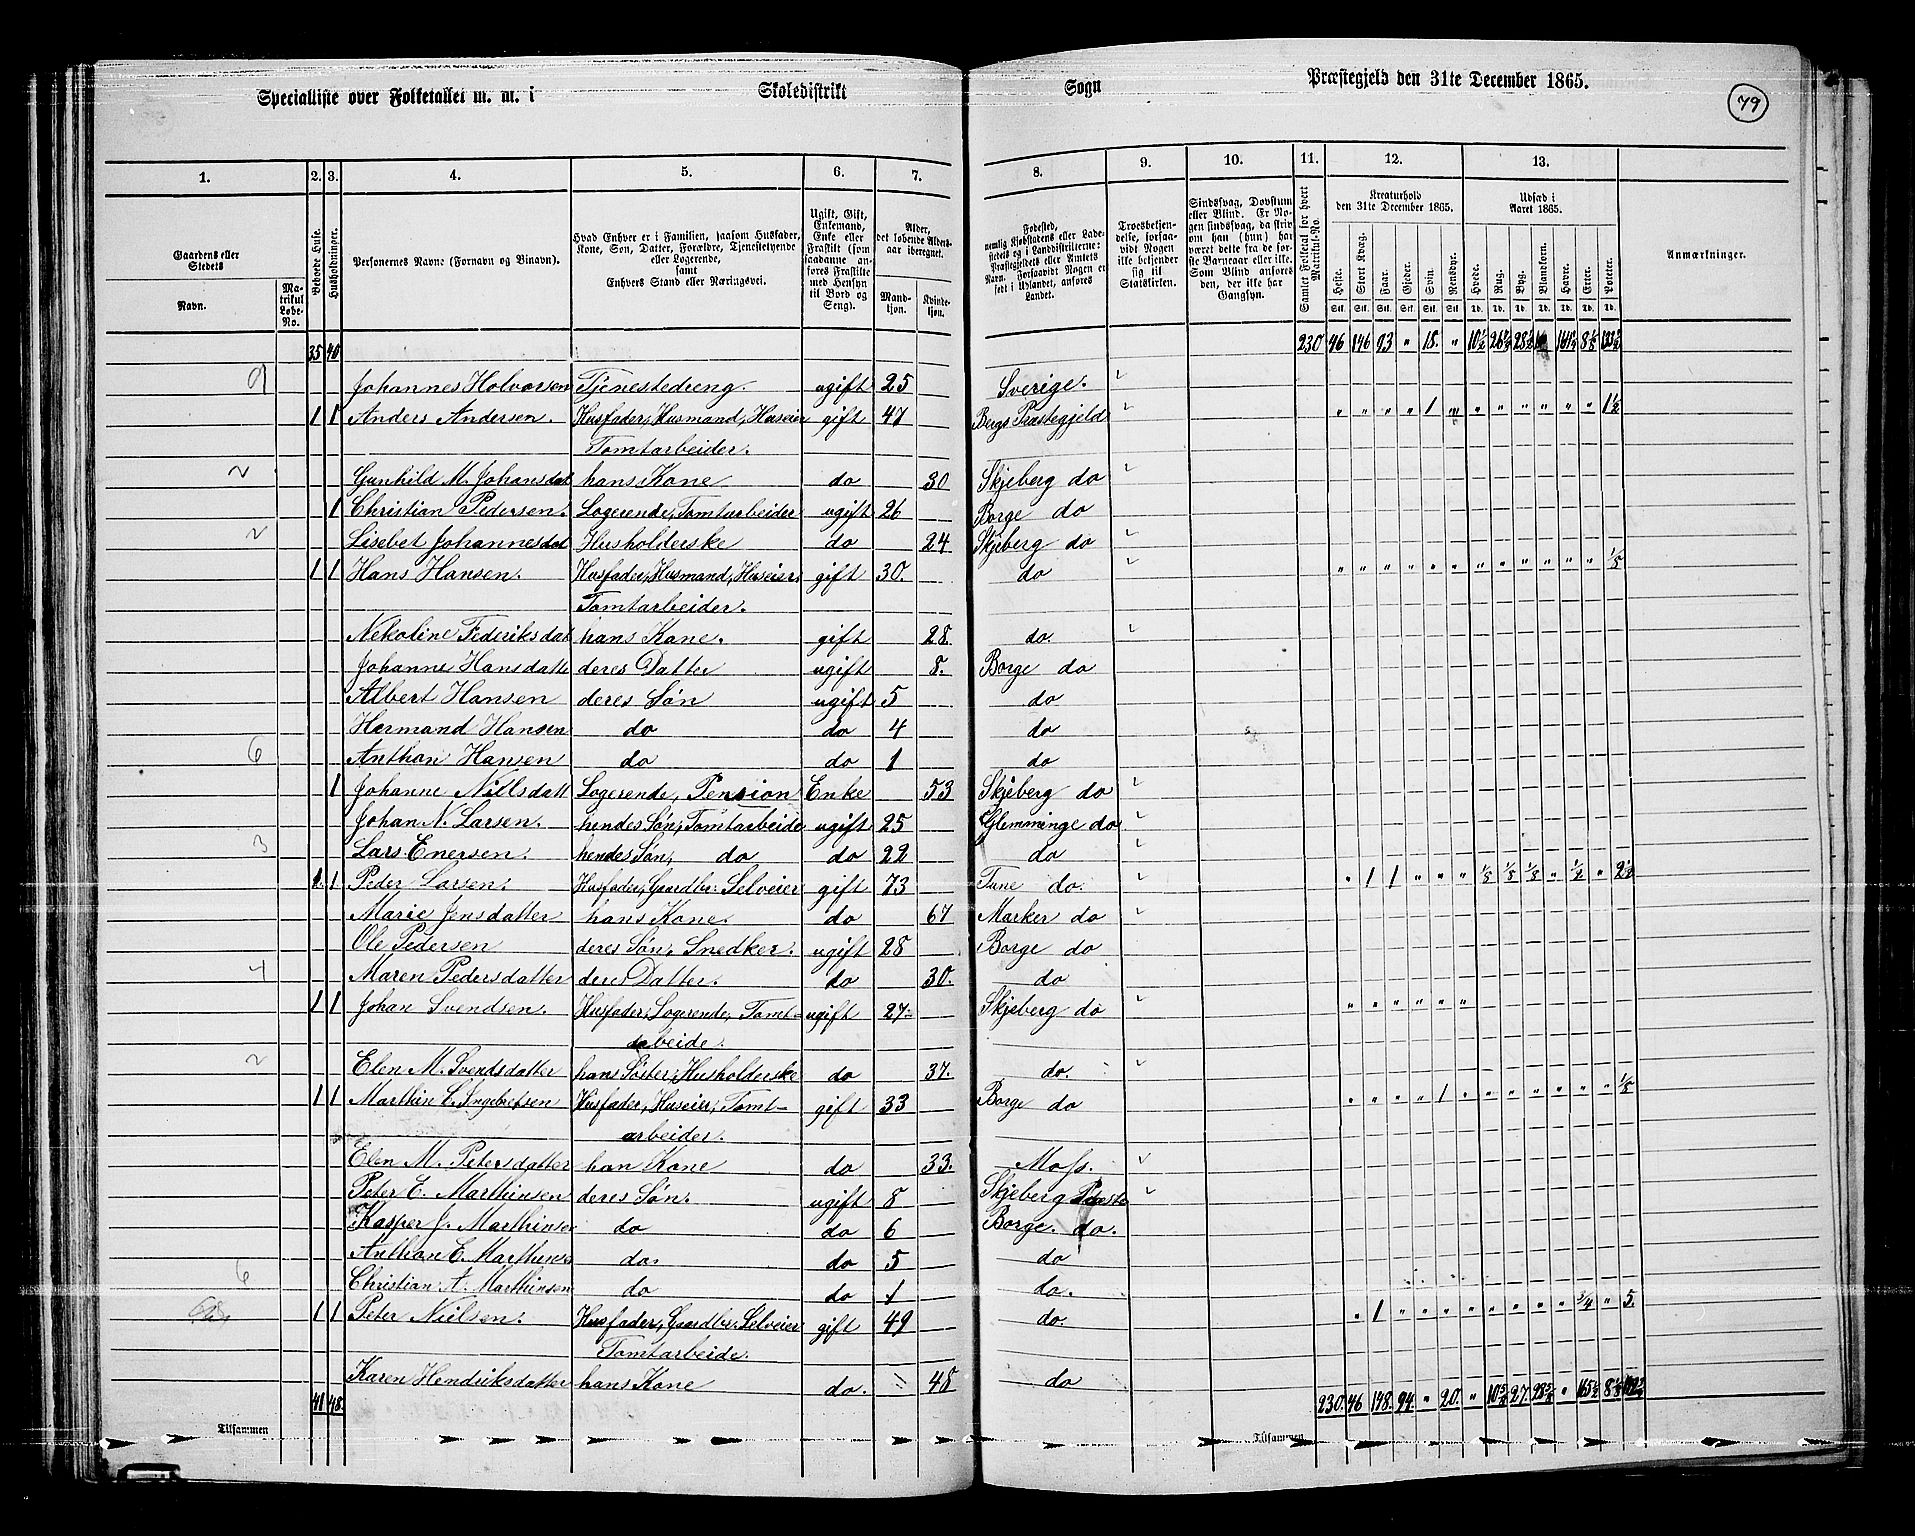 Specialliste over Folketallet m. m. i Skoledistrikt Sogn Præstegjeld den 31te December 1865.
79
1. 2. 3. 4. 5. 6. 7. 8. 9. 10. 11. 12. 13.
Gaardens eller Stedets
Navn.
Matrikul Løbe-No.
Beboede Huse.
Husholdninger.
Personernes Navne (Fornavn og Binavn).
Hvad Enhver er i Familien, saasom Husfader, Kone, Søn, Datter, Forældre, Tjenestetyende eller Logerende, samt Enhvers Stand eller Næringsvei.
Ugift, Gift, Enkemand, Enke eller Fraskilt (som saadanne anføres Fraskilte med Hensyn til Bord og Seng).
Alder, det løbende Aldersaar iberegnet.
Mandkjøn.
Kvindekjøn.
Fødested, nemlig Kjøbstadens eller Ladestedets og i Landdistrikterne: Præstegjeldets eller Amtets Navn. Forsaavidt Nogen er født i Udlandet, anføres Landet.
Troesbekjendelse, forsaavidt Nogen ikke bekjender sig til Statskirken.
Sindssvag, Døvstum eller Blind. Er Nogen sindssvag, da skriv om han (hun) har været dette fra de første Barneaar eller ikke. Som Blind anføres den, der ikke har Gangsyn.
Samlet Folketal for hvert Matrikul-No.
Kreaturhold den 31te December 1865.
Heste. Stort Kvæg. Faar. Gjeder. Svin. Rensdyr.
Udsæd i Aaret 1865.
Hvede. Rug. Byg. Blandkorn. Havre. Erter. Poteter.
Anmærkninger.
35 40 230 46 146 93 " 18. " 10½
Johannes Holvorsen Tjenestedreng. ugift 25 Sverige.
1 1 Anders Andersen. Husfader, Husmand, Huseier gift 47 Bergs Præstegjeld " " " " 1 " " " " " " " 1½
Tomtarbeider.
2 Gunhild M. Johansdat hans Kone do 30 Skjeberg do
1 Christian Pedersen. Logerende, Tomtarbeider ugift 26 Borge do
2 Lisebet Johannesdat Husholderske do 24 Skjeberg do
1 1 Hans Hansen. Husfader, Husmand, Huseier, gift 30. do " " " " " " " " " " " " 1/8
Tomtarbeider.
Nekoline Federiksdat hans Kone. gift 28 do.
Johanne Hansdatte deres Datter ugift 8. Borge do
Albert Hansen deres Søn ugift 5 do
Hermand Hansen do do 4 do
6 Anthon Hansen do do 1 do
1 Johanne Nillsdatt Logerende, Pension Enke 53 Skjeberg do
Johan N. Larsen. hendes Søn, Tomtarbeide ugift 25 Glemminge do
3 Lars Enersen. hendes Søn, do do 22 do
1 1 Peder Larsen. Husfader, Gaardbr. Selveier gift 73 Tune do. " 1 1 " " " 1/8 1/8 1/8 " 1/2 "
Marie Jensdatter hans Kone. do 67 Marker do
Ole Pedersen deres Søn, Snedker. ugift 28 Borge do
4 Maren Pedersdatter dere Datter. do 30. do
1 1 Johan Svendsen. Husfader, Logerende, Tomt- ugift 27. Skjeberg do " " " " " "
arbeide.
2 Elen M. Svendsdatter hans Søster, Husholderske do 37. do.
1 1 Marthin E. Ingebretsen Husfader, Huseier, Tomt- gift 33 Borge do " " " " 1 " " " " " " " 1/8
arbeider.
Elen M. Petersdatter han Kone do 33. Moss.
Peter E. Marthinsen deres Søn. ugift 8 Skjeberg Præste
Kasper J. Marthinsen do do 6 Borge. do.
Anthon E. Marthinsen do. do 5 do
6 Christian A. Marthinsen do do 1 do.
1 1 Peter Nielsen. Husfader, Gaardbr. Selveier gift 49 do. " 1 " " " " " " " " 3/4 " 5.
Tomtarbeide.
Karen Hendriksdatter hans Kone do. 48 do
41 48. 230. 46 148. 94. " 20. "
Tilsammen Tilsammen